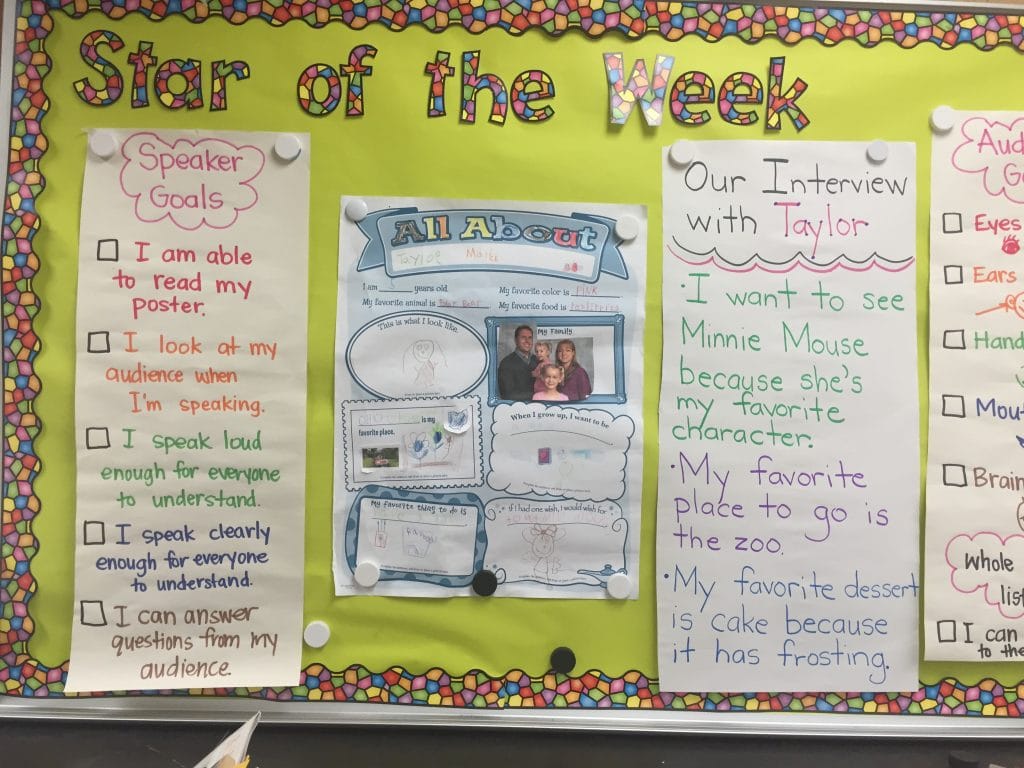 Star of the Week
Speaker
Goals
I am able
to read my
poster.
I look at my
audience when
I'm speaking.
I speak loud
enough for everyone
to understand.
I speak clearly
enough for everyone
to understand.
I can answer
questions from my
audience.
All About
Taylor
I am years old.
My favorite color is PINK
My favorite animal is
My favorite food is
This is what I look like.
My Family
is my
favorite place.
When I grow up, I want to be
My favorite thing to do is
If I had one wish, I would wish for
Our Interview
with Taylor
·I want to see
Minnie Mouse
because she's
my favorite
character.
·My favorite
place to go is
the zoo.
·My favorite dessert
is cake because
it has frosting.
Aud
Go
Eyes
Ears
Hand
Mou
Brain
Whole
list
I can
to the